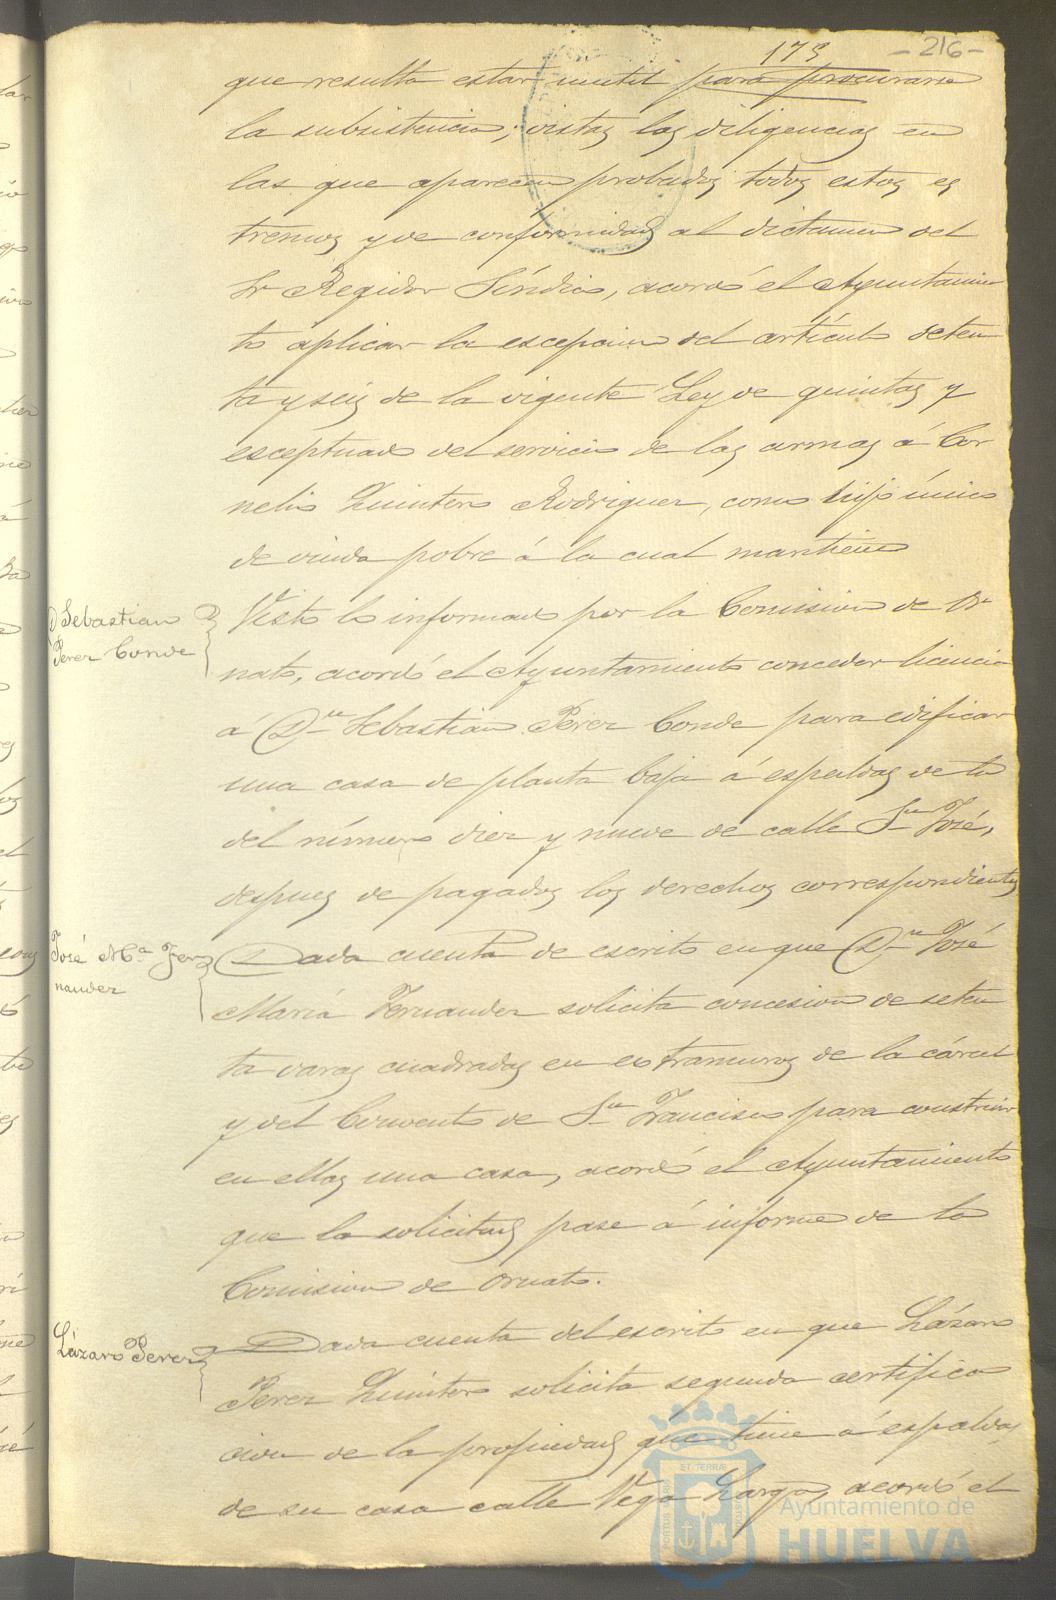 173
- 216 -
que resulta estar inutil para procurarse
la subsistencia; vistas las diligencias en
las que aparecen probados todos estos es
tremos y de conformidad al dictamen del
Sr Regidor Síndico, acordó el Ayuntamien
to aplicar la escepcion del artículo seten
ta y seis de la vigente Ley de quintas y
esceptuado del servicio de las armas á Cor
nelio Quintero Rodriguez, como hijo único
de viuda pobre á la cual mantiene
D Sebastian
Perez Conde
Visto lo informado por la Comision de Or
nato, acordó el Ayuntamiento conceder licencia
á Dn Sebastian Pérez Conde para edificar
una casa de planta baja á espaldas de la
del número diez y nueve de calle Sn José,
despues de pagados los derechos correspondientes
José Ma Fer
nandez
Dada cuenta de escrito en que Dn José
María Fernandez solicita concesion de seten
ta varas cuadradas en extramuros de la cárcel
y del Convento de Sn Francisco para construir
en ellas una casa, acordó el Ayuntamiento
que la solicitud pase á informe de la
Comision de Ornato.
Lázaro Perez
Dada cuenta del escrito en que Lázaro
Perez Quintero solicita segunda certifica
cion de la propiedad que tiene á espaldas
de su casa calle Vega Larga, acordó el
Ayuntamiento de
HUELVA